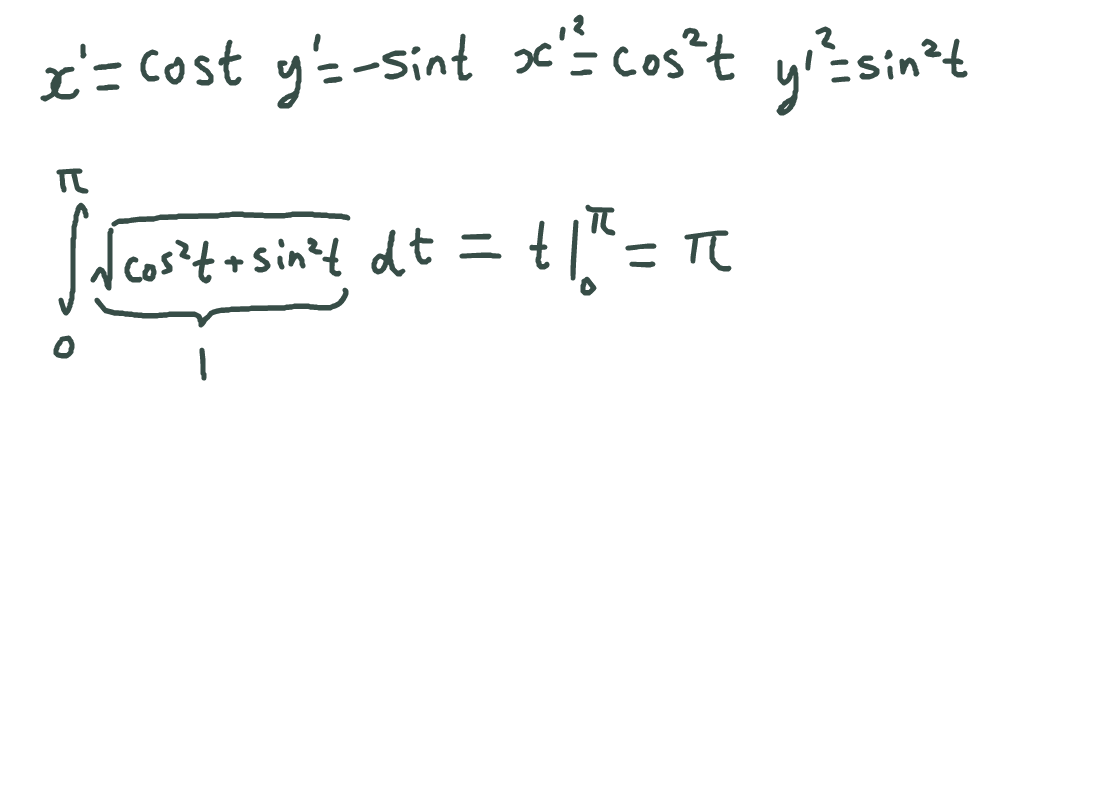 x' = cost y' = -sint x'² = cos²t y'² = sin²t
∫₀^π √(cos²t + sin²t) dt = t|₀^π = π
1